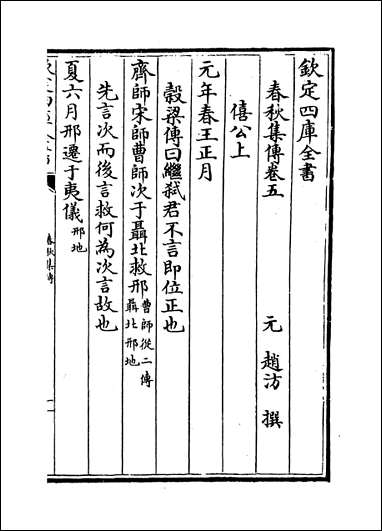 欽定四庫全書
春秋集傳卷五
元 趙汸 撰
僖公上
元年春王正月
穀梁傳曰繼弑君不言即位正也
齊師宋師曹師次于聶北救邢曹師從二傳聶北邢地
先言次而後言救何為次言故也
夏六月邢遷于夷儀邢地
春秋集傳